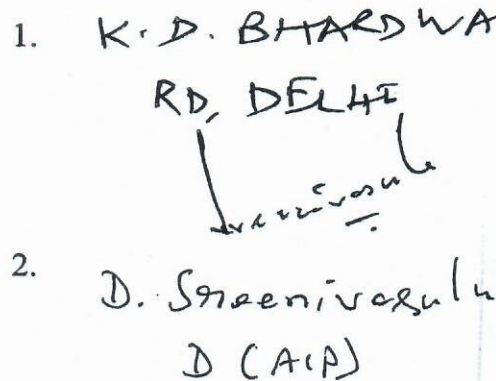 1. K. D. BHARDWA
RD, DELHI
2. D. Sreenivasulu
D (AIP)